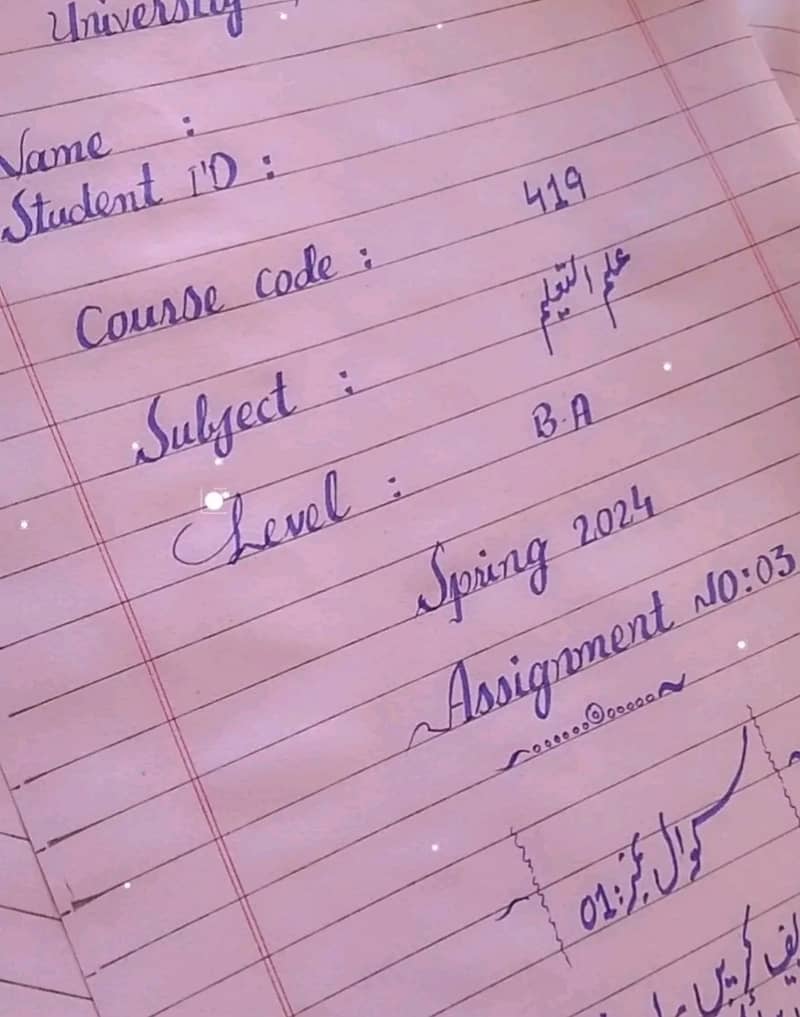 University
Name :
Student I'D :
Course code : 419
Subject : علم التعلیم
Level : B.A
Spring 2024
Assignment NO:03
سوال نمبر:01
کریں